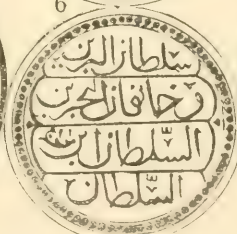 6
سلطان البرين
وخاقان البحرين
السلطان بن
السلطان